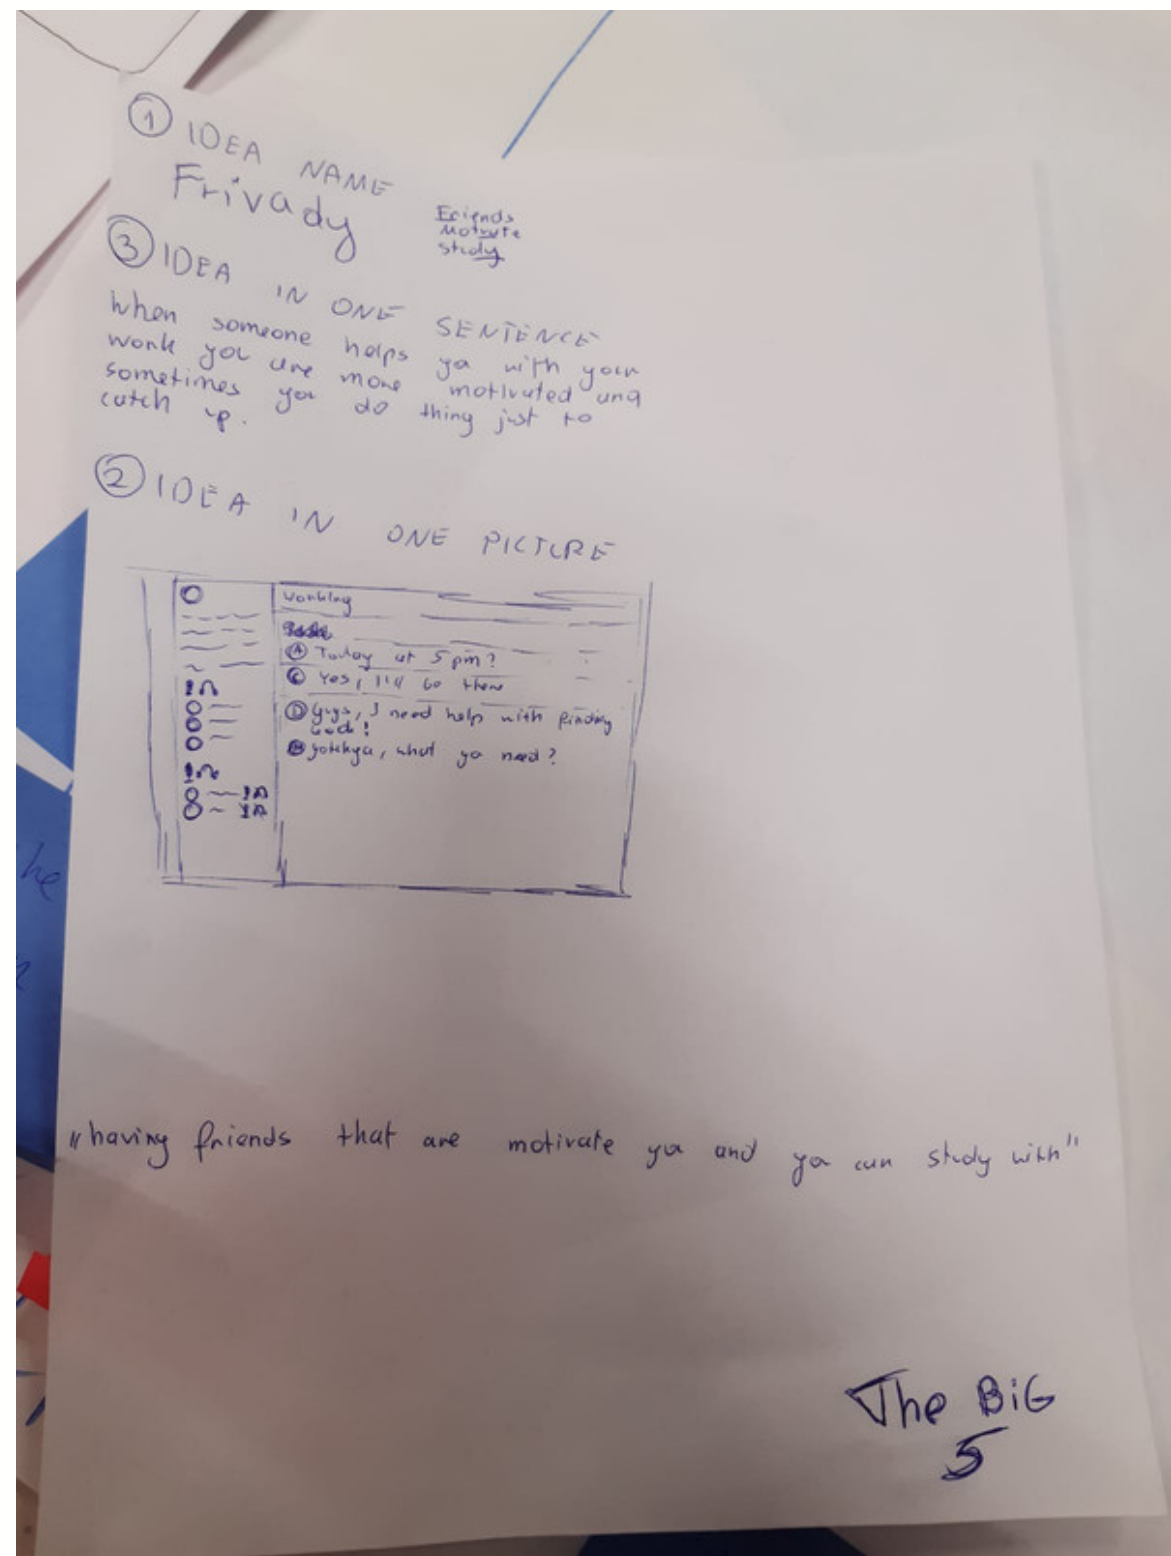 ① IDEA NAME
Frivady
Friends
Motivate
Study
③ IDEA IN ONE SENTENCE
When someone helps ya with your
work you are more motivated and
sometimes you do thing just to
catch up.
② IDEA IN ONE PICTURE
Working
Ⓐ Today at 5 pm?
Ⓒ Yes, I'll be there
Ⓓ Guys, I need help with finding
what ya need?
"having friends that are motivate ya and ya can study with"
The BiG
5
he